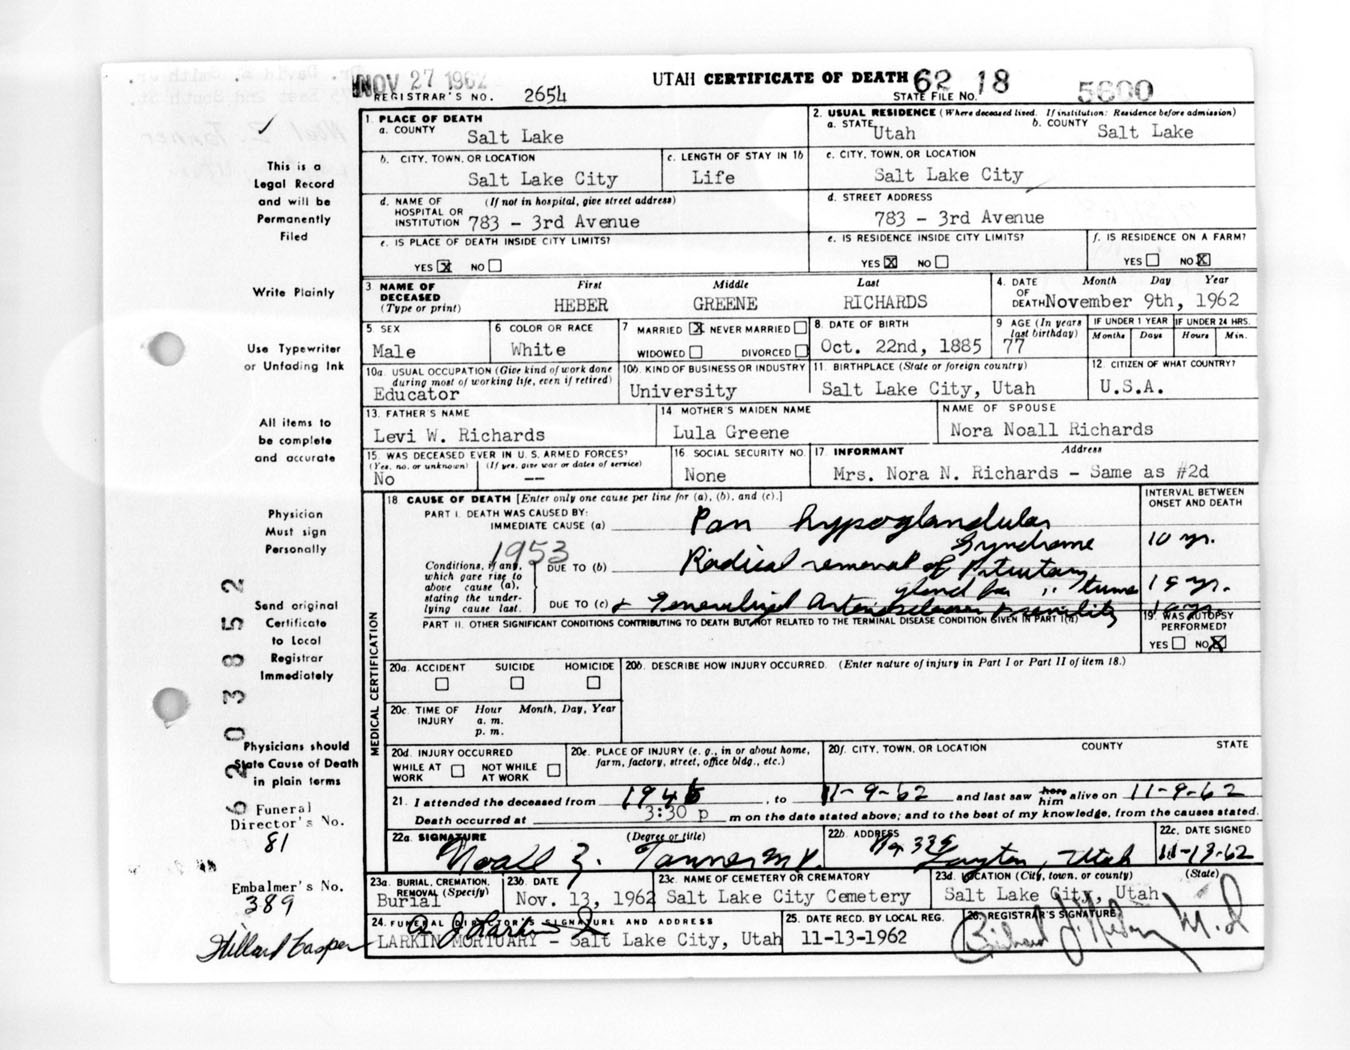 NOV 27 1962
UTAH CERTIFICATE OF DEATH 62 18 5600
REGISTRAR'S NO. 2654
STATE FILE NO.
This is a
Legal Record
and will be
Permanently
Filed
Write Plainly
Use Typewriter
or Unfading Ink
All items to
be complete
and accurate
Physician
Must sign
Personally
Send original
Certificate
to Local
Registrar
Immediately
Physicians should
State Cause of Death
in plain terms
Funeral
Director's No.
81
Embalmer's No.
389
Hillard Casper
1. PLACE OF DEATH
a. COUNTY Salt Lake
2. USUAL RESIDENCE (Where deceased lived. If institution: Residence before admission)
a. STATE Utah b. COUNTY Salt Lake
b. CITY, TOWN, OR LOCATION Salt Lake City
c. LENGTH OF STAY IN 1b Life
c. CITY, TOWN, OR LOCATION Salt Lake City
d. NAME OF HOSPITAL OR INSTITUTION (If not in hospital, give street address) 783 - 3rd Avenue
d. STREET ADDRESS 783 - 3rd Avenue
e. IS PLACE OF DEATH INSIDE CITY LIMITS? YES X NO
e. IS RESIDENCE INSIDE CITY LIMITS? YES X NO
f. IS RESIDENCE ON A FARM? YES NO X
3 NAME OF DECEASED (Type or print) First HEBER Middle GREENE Last RICHARDS
4. DATE OF DEATH Month Day Year November 9th, 1962
5. SEX Male
6 COLOR OR RACE White
7 MARRIED X NEVER MARRIED WIDOWED DIVORCED
8. DATE OF BIRTH Oct. 22nd, 1885
9 AGE (In years last birthday) 77
IF UNDER 1 YEAR Months Days
IF UNDER 24 HRS. Hours Min.
10a. USUAL OCCUPATION (Give kind of work done during most of working life, even if retired) Educator
10b. KIND OF BUSINESS OR INDUSTRY University
11. BIRTHPLACE (State or foreign country) Salt Lake City, Utah
12. CITIZEN OF WHAT COUNTRY? U.S.A.
13. FATHER'S NAME Levi W. Richards
14 MOTHER'S MAIDEN NAME Lula Greene
NAME OF SPOUSE Nora Noall Richards
15. WAS DECEASED EVER IN U. S. ARMED FORCES? (Yes, no, or unknown) No (If yes, give war or dates of service) --
16. SOCIAL SECURITY NO. None
17. INFORMANT Address Mrs. Nora N. Richards - Same as #2d
MEDICAL CERTIFICATION
18 CAUSE OF DEATH [Enter only one cause per line for (a), (b), and (c).]
INTERVAL BETWEEN ONSET AND DEATH
PART I. DEATH WAS CAUSED BY:
IMMEDIATE CAUSE (a) Pan hypoglandular Syndrome 10 yr.
1953
Conditions, if any, which gave rise to above cause (a), stating the underlying cause last.
DUE TO (b) Radical removal of Pituitary gland for tumor
DUE TO (c) & Generalized Arteriosclerosis & senility
PART II. OTHER SIGNIFICANT CONDITIONS CONTRIBUTING TO DEATH BUT NOT RELATED TO THE TERMINAL DISEASE CONDITION GIVEN IN PART I(a)
19. WAS AUTOPSY PERFORMED? YES NO X
20a. ACCIDENT SUICIDE HOMICIDE
20b. DESCRIBE HOW INJURY OCCURRED. (Enter nature of injury in Part I or Part II of item 18.)
20c. TIME OF INJURY Hour a. m. p. m. Month, Day, Year
20d. INJURY OCCURRED WHILE AT WORK NOT WHILE AT WORK
20e. PLACE OF INJURY (e. g., in or about home, farm, factory, street, office bldg., etc.)
20f. CITY, TOWN, OR LOCATION COUNTY STATE
21. I attended the deceased from 1945, to 11-9-62 and last saw him alive on 11-9-62
Death occurred at 3:30 p m on the date stated above; and to the best of my knowledge, from the causes stated.
22a. SIGNATURE (Degree or title) Noall Z. Tanner M.D.
22b. ADDRESS Layton, Utah
22c. DATE SIGNED 11-13-62
23a. BURIAL, CREMATION, REMOVAL (Specify) Burial
23b. DATE Nov. 13, 1962
23c. NAME OF CEMETERY OR CREMATORY Salt Lake City Cemetery
23d. LOCATION (City, town, or county) (State) Salt Lake City, Utah
24. FUNERAL DIRECTOR'S SIGNATURE AND ADDRESS
LARKIN MORTUARY - Salt Lake City, Utah
25. DATE RECD. BY LOCAL REG. 11-13-1962
26. REGISTRAR'S SIGNATURE